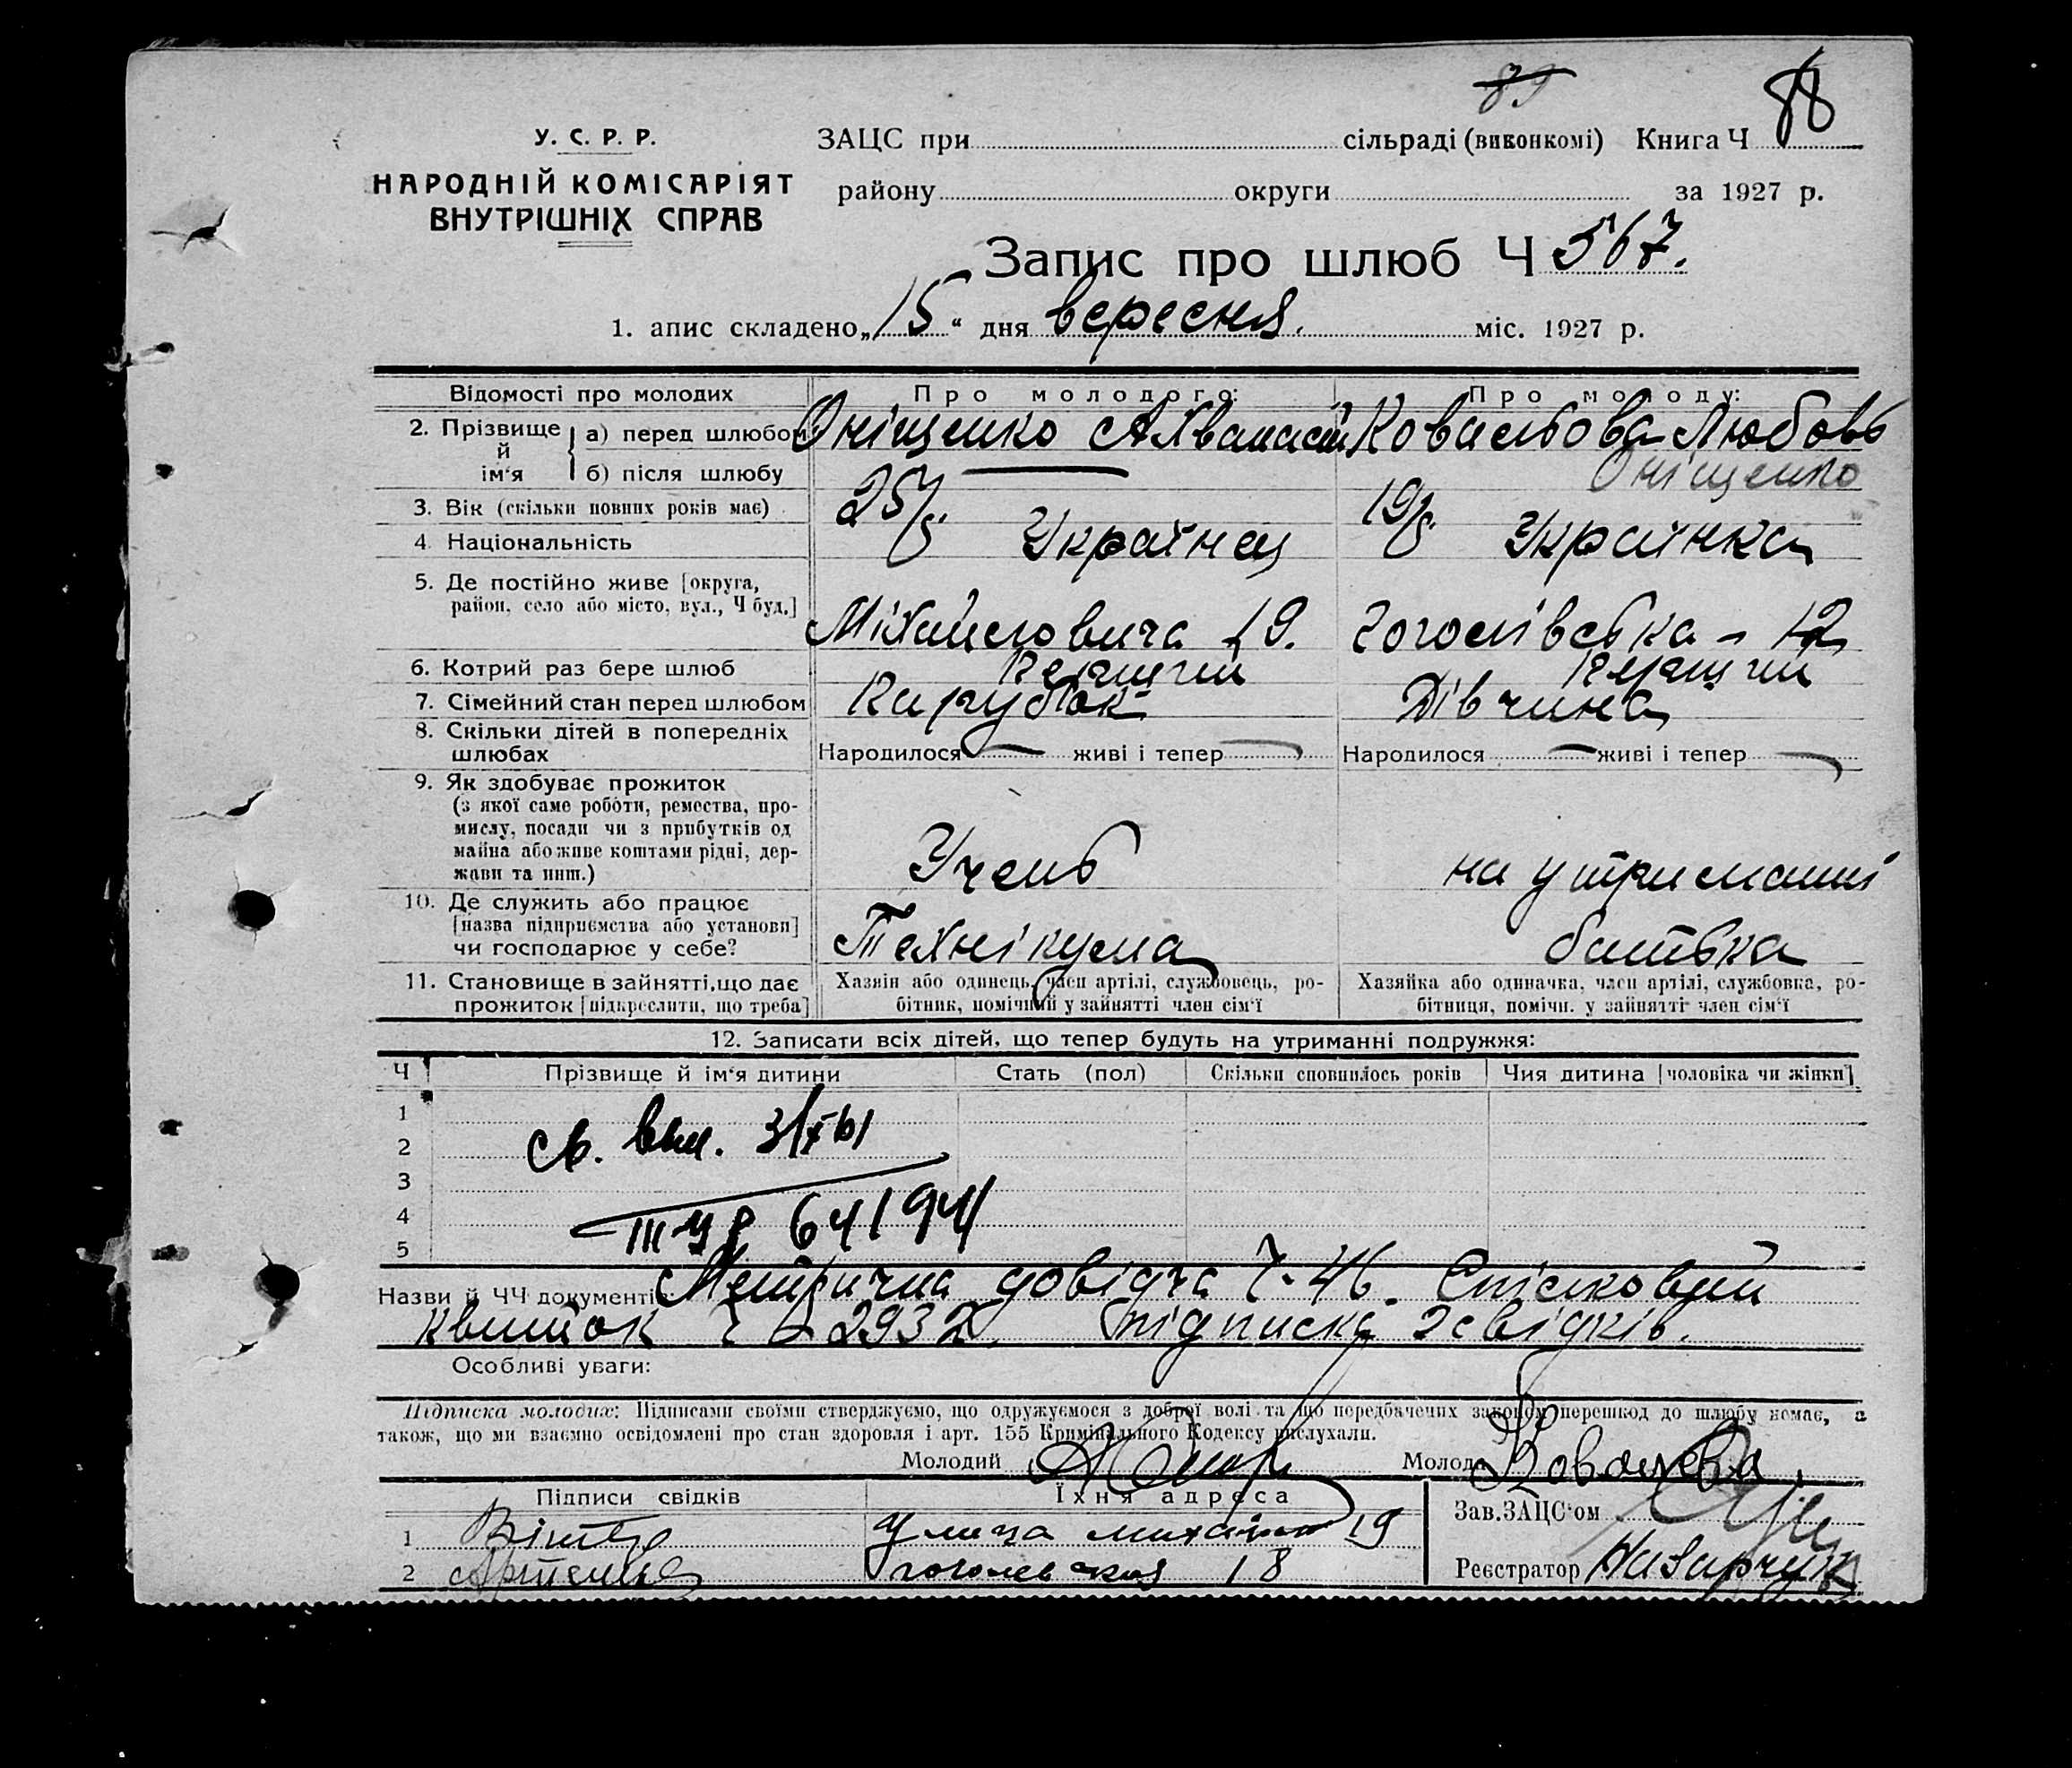 88
У. С. Р. Р.
НАРОДНІЙ КОМІСАРІЯТ
ВНУТРІШНІХ СПРАВ
ЗАЦС при сільраді (виконкомі) Книга Ч
району округи за 1927 р.
Запис про шлюб Ч 567.
1. апис складено „15“ дня вересня. міс. 1927 р.
Відомості про молодих Про молодого: Про молоду:
2. Прізвище й ім‘я а) перед шлюбом Оніщенко Ахванасій Ковальова Любовь
б) після шлюбу Оніщенко
3. Вік (скільки повних років має) 25 19
4. Національність Українец Українка
5. Де постійно живе [округа,
район, село або місто, вул., Ч буд.] Міхайловича 19. Гоголівська - 12
6. Котрий раз бере шлюб Перший Перший
7. Сімейний стан перед шлюбом Парубок Дівчина
8. Скільки дітей в попередніх
шлюбах Народилося живі і тепер Народилося живі і тепер
9. Як здобуває прожиток
(з якої саме роботи, ремества, про-
мислу, посади чи з прибутків од
майна або живе коштами рідні, дер-
жави та инш.) Учень на утриманні
10. Де служить або працює
[назва підприємства або установи]
чи господарює у себе? Технікума батька
11. Становище в зайнятті, що дає
прожиток [підкреслити, що треба]
Хазяін або одинець, член артілі, службовець, ро-
бітник, помічний у зайнятті член сім‘ї
Хазяйка або одиначка, член артілі, службовка, ро-
бітниця, помічн. у зайнятті член сім‘ї
12. Записати всіх дітей, що тепер будуть на утриманні подружжя:
Ч Прізвище й ім‘я дитини Стать (пол) Скільки сповнилось років Чия дитина [чоловіка чи жінки]
1
2
3
4
5
Назви й ЧЧ документі Метрична довідча Ч-46. Спісковий
квиток 2932. Підписка свідків.
Особливі уваги:
Підписка молодих: Підписами своїми стверджуємо, що одружуємося з доброї волі та що передбачених законом перешкод до шлюбу немає, а
також, що ми взаємно освідомлені про стан здоровля і арт. 155 Кримінального Кодексу вислухали.
Молодий Молода Ковальова
Підписи свідків Їхня адреса
1 улица 19
2 гоголевская 18
Зав. ЗАЦС‘ом
Реєстратор Назарчук